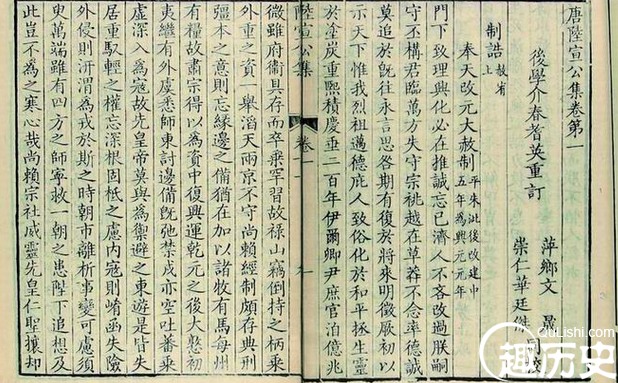 唐陸宣公集卷第一
後學介春耆英重訂
萍鄉文
崇仁華廷
制誥上 赦宥
奉天改元大赦制 平朱泚後改建中
五年為興元元年
門下致理興化必在推誠忘已濟人不吝改過朕嗣
守丕構君臨萬方失守宗祧越在草莽不念率德誠
莫追於既往永言思咎期有復於將來明徵厥初以
示天下惟我烈祖邁德庇人致俗化於和平拯生靈
於塗炭重熙積慶垂二百年伊爾卿尹庶官洎億兆
陸宣公集
卷一
微雖府衛具存而卒乘罕習故祿山竊倒持之柄乘
外重之資一舉滔天兩京不守尚賴經制頗存典刑
彊本之意則忘緣邊之備猶在加以諸牧有馬每州
有糧故肅宗得以為資中復興運乾元之後大憝初
夷繼有外虞悉師東討邊備既弛禁戎亦空吐蕃乘
虛深入為寇故先皇帝莫與為禦避之東遊是皆失
居重馭輕之權忘深根固柢之慮內寇則崤函失險
外侵則汧渭為戎於斯之時朝市離析事變可慮須
臾萬端雖有四方之師寧救一朝之患陛下追想及
此豈不為之寒心哉尚賴宗社威靈先皇仁聖攘却
QuLiShi.com
趣历史